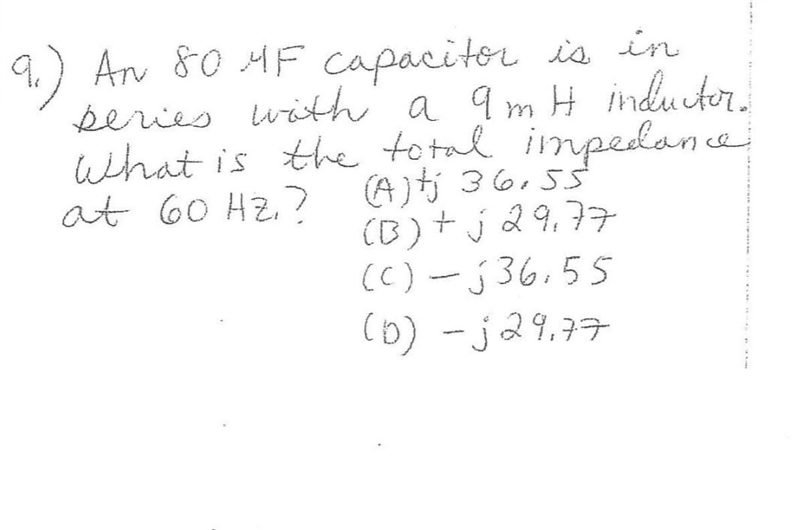 9.) An 80 μF capacitor is in
series with a 9 mH inductor.
What is the total impedance
at 60 Hz.? (A) +j 36.55
(B) + j 29.77
(C) – j 36.55
(D) – j 29.77